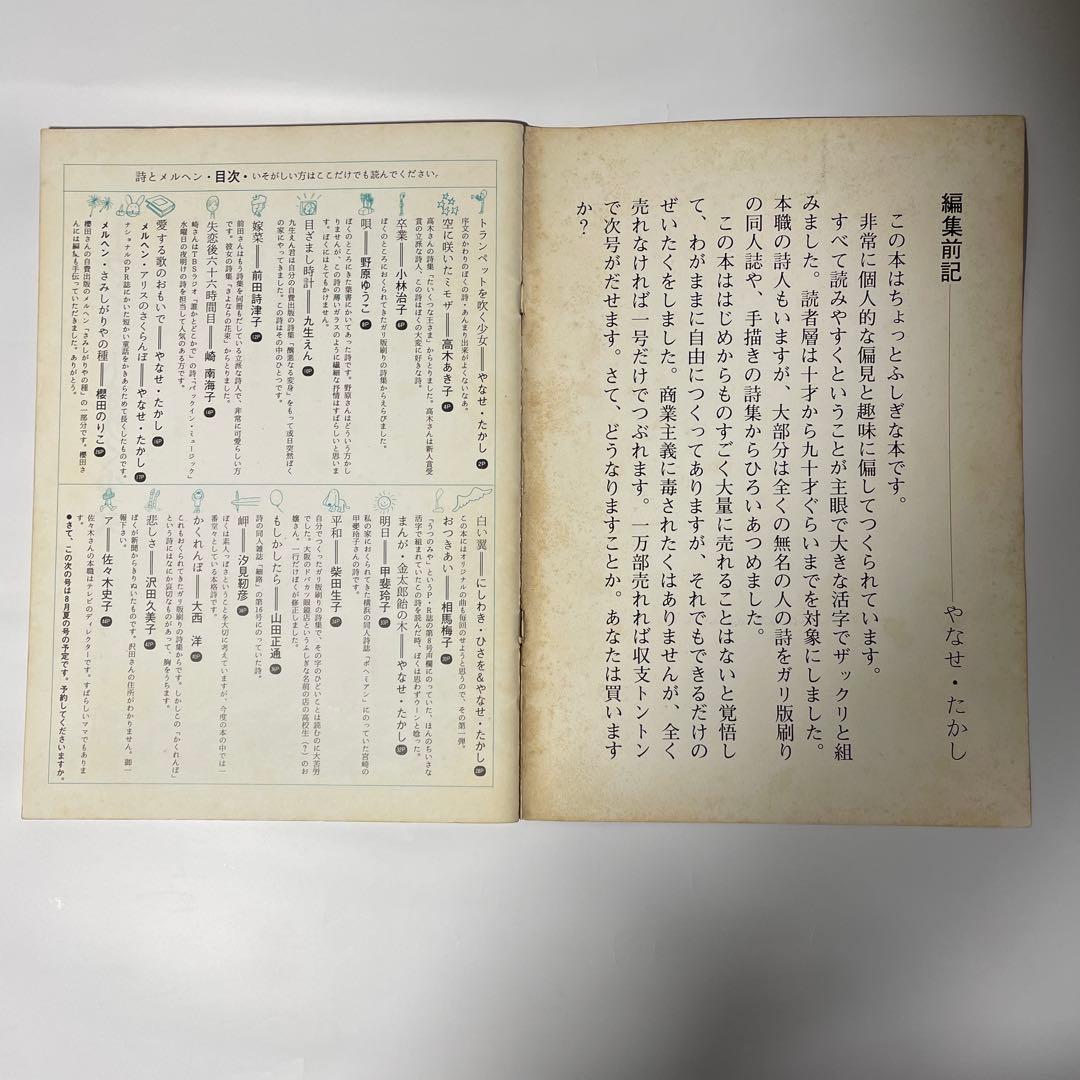 編集前記――やなせ・たかし
この本はちょっとふしぎな本です。
非常に個人的な偏見と趣味に偏してつくられています。
すべて読みやすくということが主眼で大きな活字でザックリと組
みました。読者層は十才から九十才ぐらいまでを対象にしました。
本職の詩人もいますが、大部分は全くの無名の人の詩をガリ版刷り
の同人誌や、手描きの詩集からひろいあつめました。
この本ははじめからものすごく大量に売れることはないと覚悟し
て、わがままに自由につくってありますが、それでもできるだけの
ぜいたくをしました。商業主義に毒されたくはありませんが、全く
売れなければ一号だけでつぶれます。一万部売れれば収支トントン
で次号がだせます。さて、どうなりますことか。あなたは買います
か?
詩とメルヘン・目次・いそがしい方はここだけでも読んでください。
トランペットを吹く少女――やなせ・たかし 2P
序文のかわりのぼくの詩・あんまり出来がよくないなあ。
空に咲いたミモザ――高木あき子 4P
高木さんの詩集「たいくつな王さま」からとりました。高木さんは新人賞受
賞の立派な詩人、この詩はぼくの大変に好きな詩。
卒業――小林治子 6P
ぼくのところにおくられてきたガリ版刷りの詩集からえらびました。
唄――野原ゆうこ 8P
ぼくのところにきた葉書にかいてあった詩です。野原さんはどういう方かし
りませんが、この詩の薄いガラスのように繊細な抒情はすばらしいと思いま
す。ぼくにはとてもかけません。
目ざまし時計――九生えん 10P
九生えん君は自分の自費出版の詩集「醜悪なる変身」をもって或日突然ぼく
の家にやってきました。この詩はその中のひとつです。
嫁菜――前田詩津子 12P
前田さんはもう詩集を何冊もだしている立派な詩人で、非常に可愛らしい方
です。彼女の詩集「さよならの花束」からとりました。
失恋後六十六時間目――崎 南海子 14P
崎さんはTBSラジオ「誰かとどこかで」の詩、「パックイン・ミュージック」
水曜日の夜明けの詩を担当して人気のある方です。
愛する歌のおもいで――やなせ・たかし 16P
メルヘン・アリスのさくらんぼ――やなせ・たかし 17P
ナショナルのPR誌にかいた短かい童話をかきあらためて長くしたものです。
メルヘン・さみしがりやの種――櫻田のりこ
櫻田さんの自費出版のメルヘン「さみしがりやの種」の一部分です。櫻田さ
んには編集も手伝っていただきました。ありがとう。
白い翼――にしわき・ひさを&やなせ・たかし 28P
この本にはオリジナルの曲も毎回のせようと思うので、その第一弾。
おつきあい――相馬梅子 30P
「うつのみや」というP・R誌の第8号声欄にのっていた、ほんのちいさな
活字で組まれていたこの詩を読んだ時、ぼくは思わずウーンと唸った。
まんが・金太郎飴の木――やなせ・たかし 32P
明日――甲斐玲子 33P
私の家におくられてきた横浜の同人詩誌「ボヘミアン」にのっていた宮崎の
甲斐玲子さんの詩です。
平和――柴田生子 34P
自分でつくったガリ版刷りの詩集で、その字のひどいことは読むのに大苦労
でした。大阪のドバカツ眼鏡店というふしぎな名前の店の高校生(?)のお
嬢さん。一行だけぼくが修正しました。
もしかしたら――山田正通 36P
詩の同人雑誌「細路」の第16号にのっていた詩。
岬――汐見靭彦 38P
ぼくは素人っぽさということを大切に考えていますが、今度の本の中では一
番堂々としている本格詩です。
かくれんぼ――大西 洋 40P
これもおくられてきたガリ版刷りの詩集からです。しかしこの「かくれんぼ」
という詩にはなにか哀切なものがあって、胸をうちます。
悲しさ――沢田久美子 42P
ぼくが新聞からきりぬいたものです。沢田さんの住所がわかりません。御一
報下さい。
ア――佐々木史子 44P
佐々木さんの本職はテレビのディレクターです。すばらしいママでもありま
す。
●さて、この次の号は8月夏の号の予定です。予約してくださいますか。